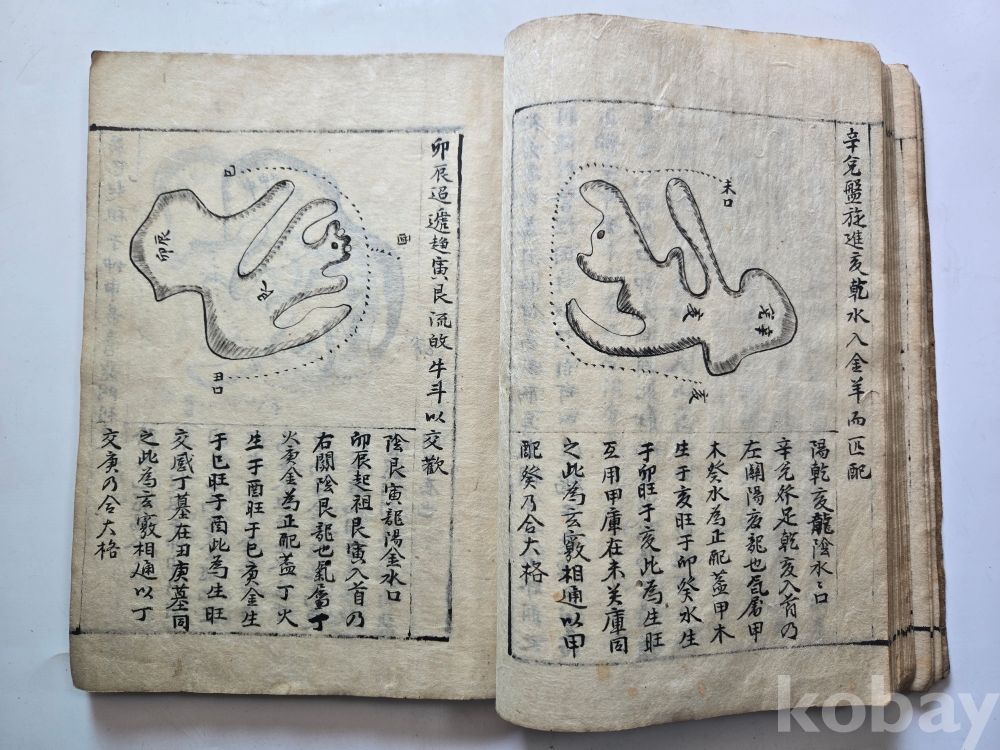 辛兌盤旋進亥乾水入金羊而匹配
未口
辛兌
亥
亥
陽乾亥龍陰水口
辛兌發足乾亥入首乃
左關陽亥龍也氣屬甲
木癸水為正配盖甲木
生于亥旺于卯癸水生
于卯旺于亥此為生旺
互用甲庫在未癸庫同
之此為玄竅相通以甲
配癸乃合大格
卯辰迢遞趋寅艮流的牛斗以交歡
巳
酉
卯辰
艮
丑口
陰艮寅龍陽金水口
卯辰起祖艮寅入首乃
右關陰艮龍也氣屬丁
火庚金為正配盖丁火
生于酉旺于巳庚金生
于巳旺于酉此為生旺
交感丁墓在丑庚墓同
之此為玄竅相通以丁
交庚乃合大格
kobay